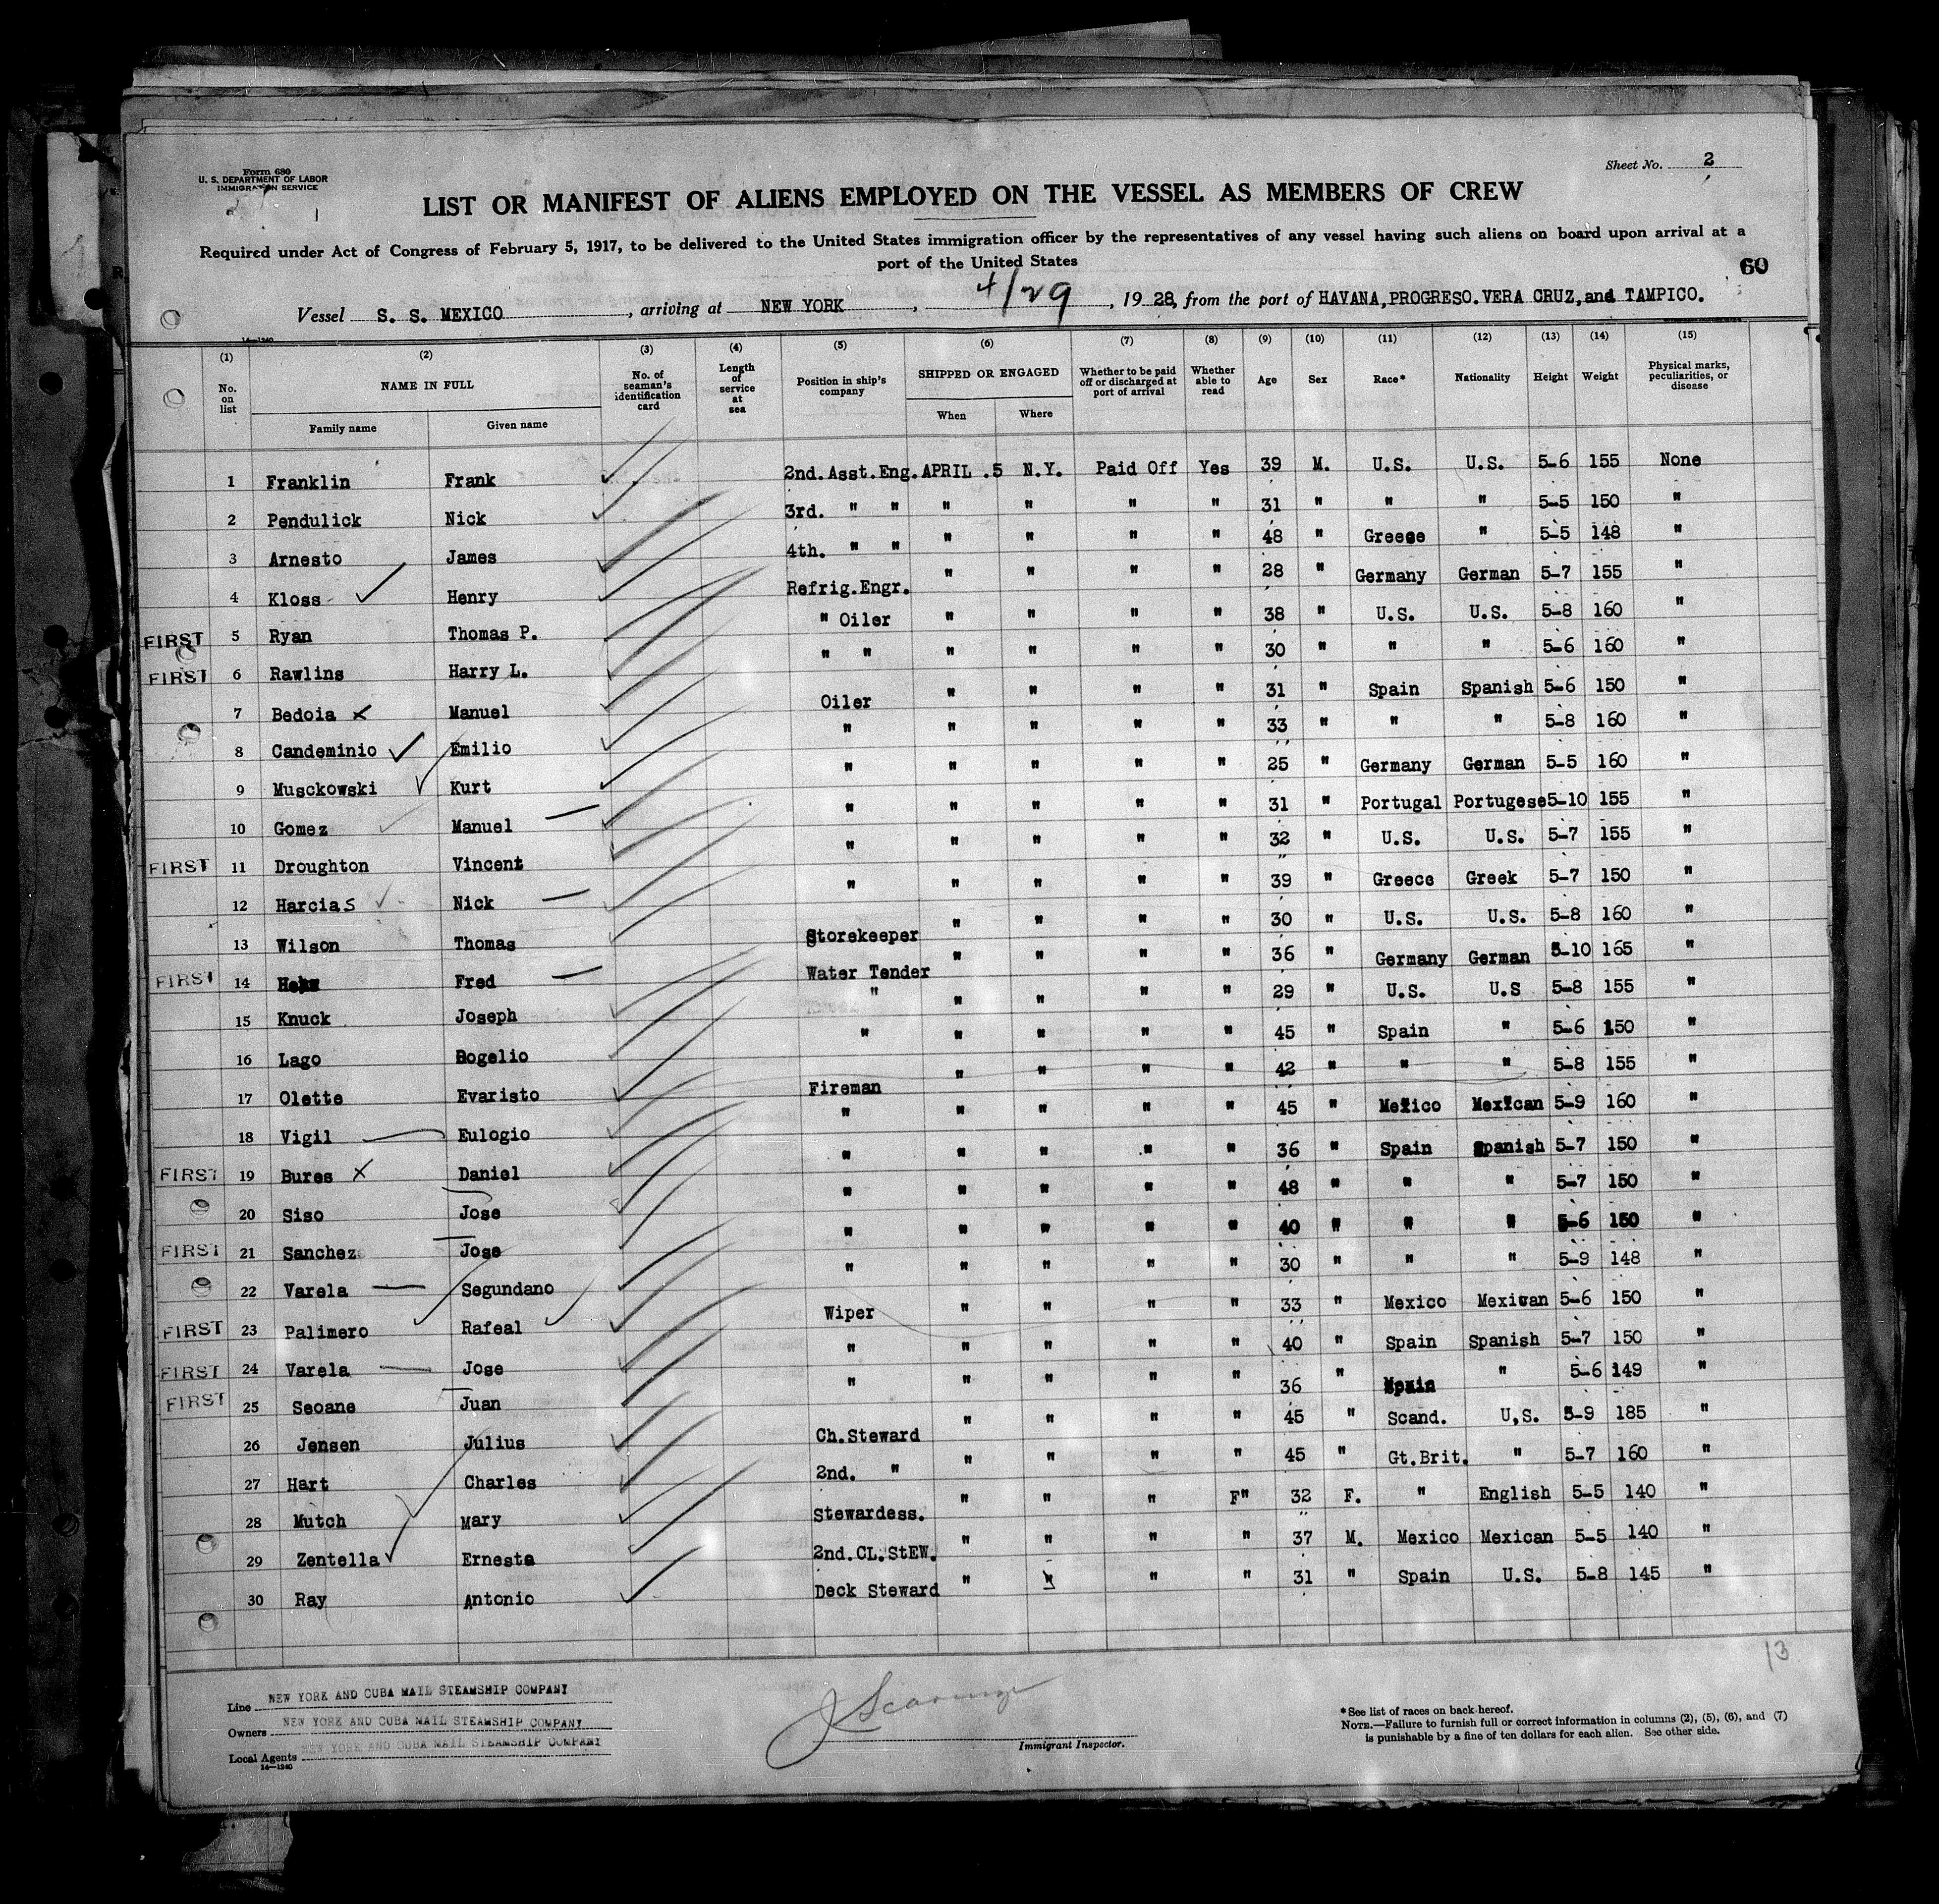 Form 680
U. S. DEPARTMENT OF LABOR
IMMIGRATION SERVICE
Sheet No. 2
LIST OR MANIFEST OF ALIENS EMPLOYED ON THE VESSEL AS MEMBERS OF CREW
Required under Act of Congress of February 5, 1917, to be delivered to the United States immigration officer by the representatives of any vessel having such aliens on board upon arrival at a
port of the United States
60
Vessel S. S. MEXICO, arriving at NEW YORK, 4/29, 1928, from the port of HAVANA, PROGRESO. VERA CRUZ, and TAMPICO.
14—1240
(1) (2) (3) (4) (5) (6) (7) (8) (9) (10) (11) (12) (13) (14) (15)
No. on list NAME IN FULL No. of seaman's identification card Length of service at sea Position in ship's company SHIPPED OR ENGAGED Whether to be paid off or discharged at port of arrival Whether able to read Age Sex Race* Nationality Height Weight Physical marks, peculiarities, or disease
Family name Given name When Where
1 Franklin Frank 2nd. Asst. Eng. APRIL .5 N.Y. Paid Off Yes 39 M. U.S. U.S. 5-6 155 None
2 Pendulick Nick 3rd. " " " " " " 31 " " " 5-5 150 "
3 Arnesto James 4th. " " " " " " 48 " Greece " 5-5 148 "
4 Kloss Henry Refrig. Engr. " " " " 28 " Germany German 5-7 155 "
FIRST 5 Ryan Thomas P. " Oiler " " " " 38 " U.S. U.S. 5-8 160 "
FIRST 6 Rawlins Harry L. " " " " " " 30 " " " 5-6 160 "
7 Bedoia Manuel Oiler " " " " 31 " Spain Spanish 5-6 150 "
8 Candeminio Emilio " " " " " 33 " " " 5-8 160 "
9 Musckowski Kurt " " " " " 25 " Germany German 5-5 160 "
10 Gomez Manuel " " " " " 31 " Portugal Portugese 5-10 155 "
FIRST 11 Droughton Vincent " " " " " 32 " U.S. U.S. 5-7 155 "
12 Harcias Nick " " " " " 39 " Greece Greek 5-7 150 "
13 Wilson Thomas Storekeeper " " " " 30 " U.S. U.S. 5-8 160 "
FIRST 14 Fred Water Tender " " " " 36 " Germany German 5-10 165 "
15 Knuck Joseph " " " " " 29 " U.S. U.S 5-8 155 "
16 Lago Rogelio " " " " " 45 " Spain " 5-6 150 "
17 Olette Evaristo Fireman " " " " 42 " " " 5-8 155 "
18 Vigil Eulogio " " " " " 45 " Mexico Mexican 5-9 160 "
FIRST 19 Bures Daniel " " " " " 36 " Spain Spanish 5-7 150 "
20 Siso Jose " " " " " 48 " " " 5-7 150 "
FIRST 21 Sanchez Jose " " " " " 40 " " " 5-6 150 "
22 Varela Segundano " " " " " 30 " " " 5-9 148 "
FIRST 23 Palimero Rafeal Wiper " " " " 33 " Mexico Mexican 5-6 150 "
FIRST 24 Varela Jose " " " " " 40 " Spain Spanish 5-7 150 "
FIRST 25 Seoane Juan " " " " " 36 " " 5-6 149 "
26 Jensen Julius Ch. Steward " " " " 45 " Scand. U.S. 5-9 185 "
27 Hart Charles 2nd. " " " " " 45 " Gt. Brit. " 5-7 160 "
28 Mutch Mary Stewardess. " " " F" 32 F. " English 5-5 140 "
29 Zentella Ernesto 2nd. CL. StEW. " " " " 37 M. Mexico Mexican 5-5 140 "
30 Ray Antonio Deck Steward " " " " 31 " Spain U.S. 5-8 145 "
13
Line NEW YORK AND CUBA MAIL STEAMSHIP COMPANY
Owners NEW YORK AND CUBA MAIL STEAMSHIP COMPANY
Local Agents NEW YORK AND CUBA MAIL STEAMSHIP COMPANY
14—1240
Immigrant Inspector.
*See list of races on back hereof.
NOTE.—Failure to furnish full or correct information in columns (2), (5), (6), and (7)
is punishable by a fine of ten dollars for each alien. See other side.